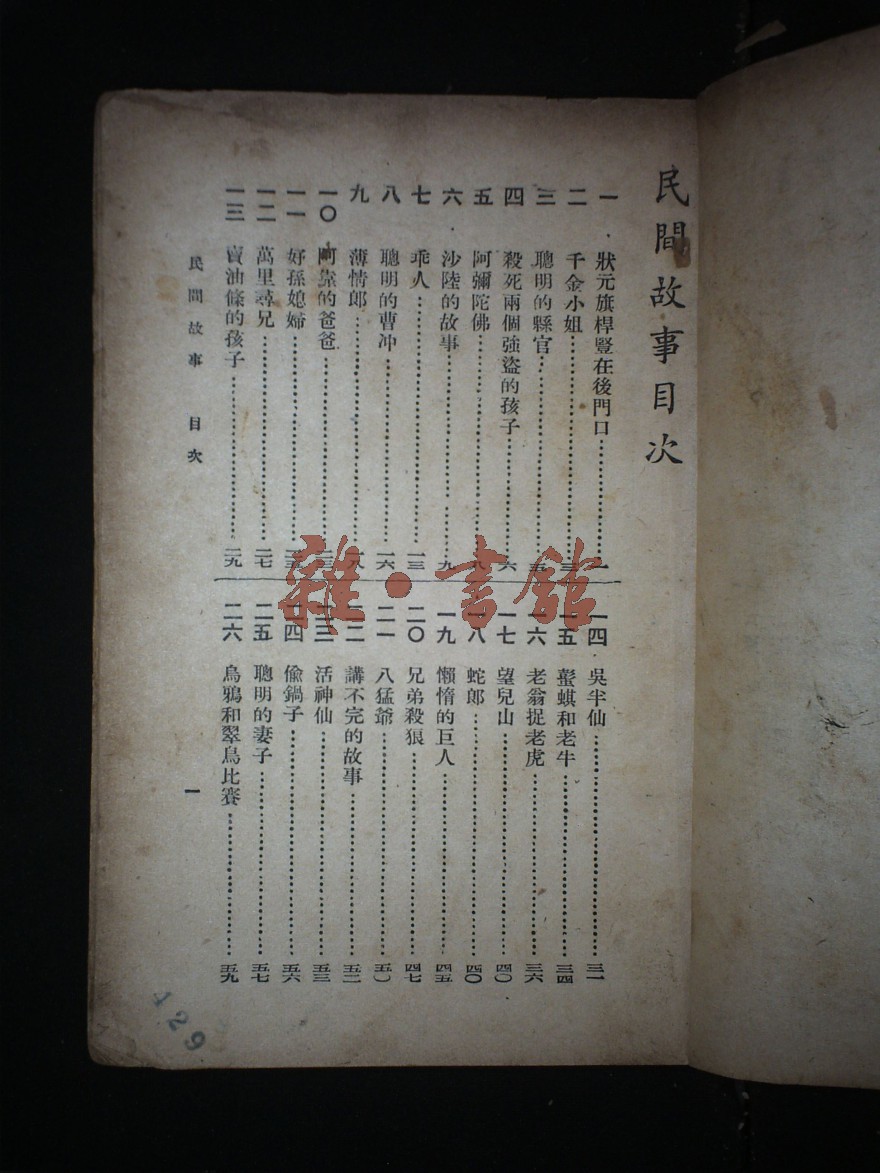 民間故事目次
一 狀元旗桿豎在後門口 一
二 千金小姐 三
三 聰明的縣官 五
四 殺死兩個強盜的孩子 六
五 阿彌陀佛 八
六 沙陸的故事 九
七 乖人 一三
八 聰明的曹冲 一六
九 薄情郎 一八
一〇 阿靠的爸爸
一一 好孫媳婦
一二 萬里尋兄 二七
一三 賣油條的孩子 二九
一四 吳半仙 三一
一五 螚蜞和老牛 三四
一六 老翁捉老虎 三六
一七 望兒山 四〇
一八 蛇郎 四〇
一九 懶惰的巨人 四五
二〇 兄弟殺狼 四七
二一 八猛爺 五〇
二二 講不完的故事 五二
二三 活神仙 五三
二四 偷鍋子 五六
二五 聰明的妻子 五七
二六 烏鴉和翠鳥比賽 五九
民間故事 目次
一
429
雜·書館